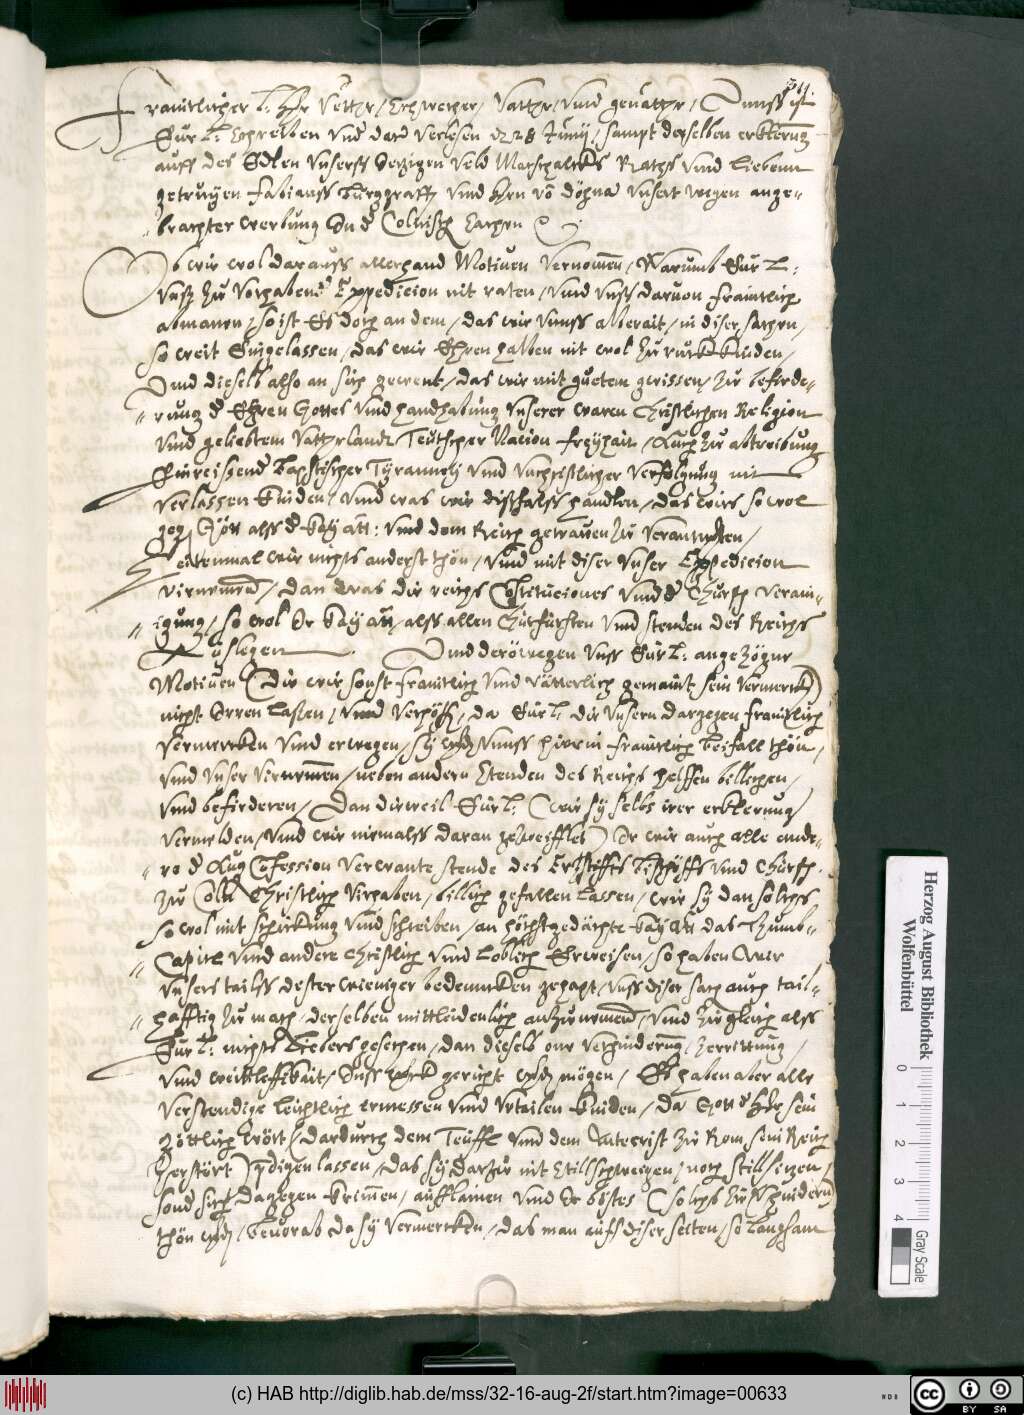 Frainntlicher L: Herr Vetter, Schweher, Vatter, vnnd geuatter, Vnnss ist
Eur L: Schreiben vnd das verlesen 28 Junij, sampt derselben erklerung
auff des Edlen vnsers Veld Marschalcks Raths vnnd liebenn
getrewen Fabianss Burggraffen vnd hern vō Dohna vnsert wegen ange-
brachter werbung In der Cölnisch sachen
Ob wir wol darauss allerhand Motiuen vernomen, Warumb Eur L:
vnss zu vorhabender Expedicion nit raten, vnnd vnss daruon frainntlich
abmanen, so ist Es doch an dem, das wir vnnss alberait, in diser sachen,
so weit Eingelassen, das wir Ehren halben nit wol zu ruckh kinden,
Vnnd dieselb also an sich gewent, das wir mit guetem gewissen, zu beferde-
rung der Ehren Gottes vnnd handhabung vnserer waren Christlichen Religion
vnnd geliebtem Vatterlandt Teutscher Nacion freyhait, Auch zu abtreibung
Einreissender Bapstischer Tyranney vnnd vnchristlicher verfolgung nit
verlassen kinden, vnnd was wir dissfalss handlen, das wirs so wol
gegen Gott alss der Kay: Matt: vnnd dem Reich getrawen zu verantwurten,
seitenmal wir nichts anderst thon, vnnd mit diser vnser Expedicion
virnemen, dan was die reichs Constituciones vnnd der Churfn verain-
igung, so wol Ir Kay: Mt, alss allen Churfürsten vnnd stenden des Reichs
Auflegen. Vnnd derowegen vnss Eur L: angezogne
Motiuen (die wir sonst frainntlich vnnd vätterlich gemaint sein vermerckh)
nicht Irren lassen, vnnd verhoff, da Eur L: die vnsern dargegen frainntlich
vermercken vnnd erwegen, sy werden vnnss hierin frainntlich beifall thon,
vnnd vnser virnemen, neben andern Stenden des Reichs helffen billichen,
vnnd befirderen, Dan dieweil Eur L: (wie sy selbs irer erklerung
vermelden, vnnd wir niemalss daran gezweifflet) Ir wie auch alle ande-
re der Aug Confession verwante stende des Ertzstiffts Bischoffs vnnd Churfn
zu Coln Christlich virhaben, billich gefallen lassen, wie sy dan solchs
so wol mit schickung vnnd schreiben, an höchstgedachte Kay Mt das Thumb-
Capitel vnnd andere Christlich vnnd Loblich Erweisen, so haben wir
vnsers tailss dester weniger bedencken gehapt, vnss diser sach auch tail-
hafftig zu mach, derselben mittleidenlich anzunemen, vnnd zugleich alss
Eur L: nichts Liebers gesehen, dan dieselb one verhinderung, zerrittung
vnnd weittleffikait, Inss werck gericht werden mögen, Es haben aber alle
verstendige leichtlich ermessen vnnd vrtailen kinden, da Gott der Herr sein
göttlich wortt (dardurch dem Teuffl vnnd dem Antecrist zu Rom sein Reich
zerstört) predigen lassen, das sy darzu nit Stillschweigen, noch still sitzen,
sonder sich dagegen krimen, aufflainen vnnd Ir bestes (solchs zu verhindern)
thon werden, beuorab da sy vermercken, das man aufs diser seiten, so langsam
Herzog August Bibliothek
Wolfenbüttel
0 1 2 3 4
Gray Scale
(c) HAB http://diglib.hab.de/mss/32-16-aug-2f/start.htm?image=00633
cc BY SA